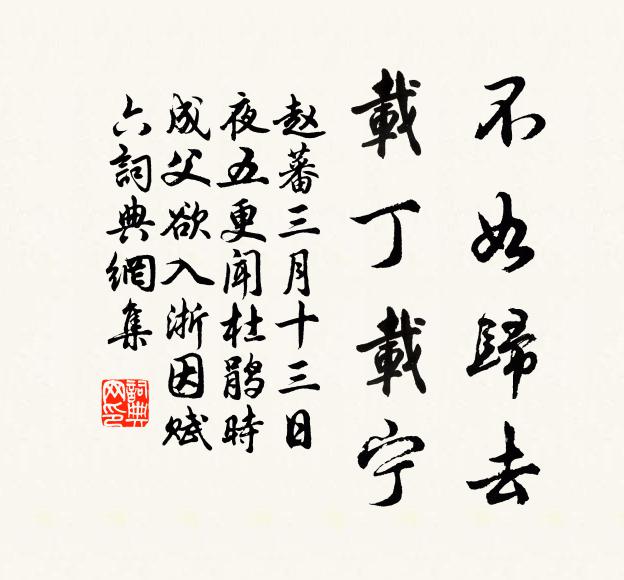 不如歸去
載丁載宁
赵蕃三月十三日
夜五更闻杜鹃時
成父欲入浙因赋
六詞典網集
詞典
网印